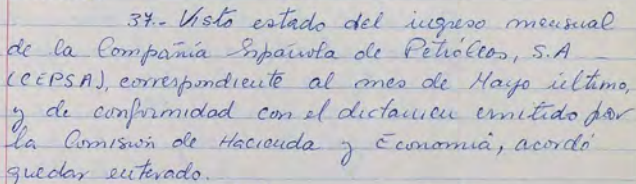 37.- Visto estado del ingreso mensual
de la Compañía Española de Petróleos, S.A
(CEPSA), correspondiente al mes de Mayo último,
y de conformidad con el dictamen emitido por
la Comisión de Hacienda y Economía, acordó
quedar enterado.